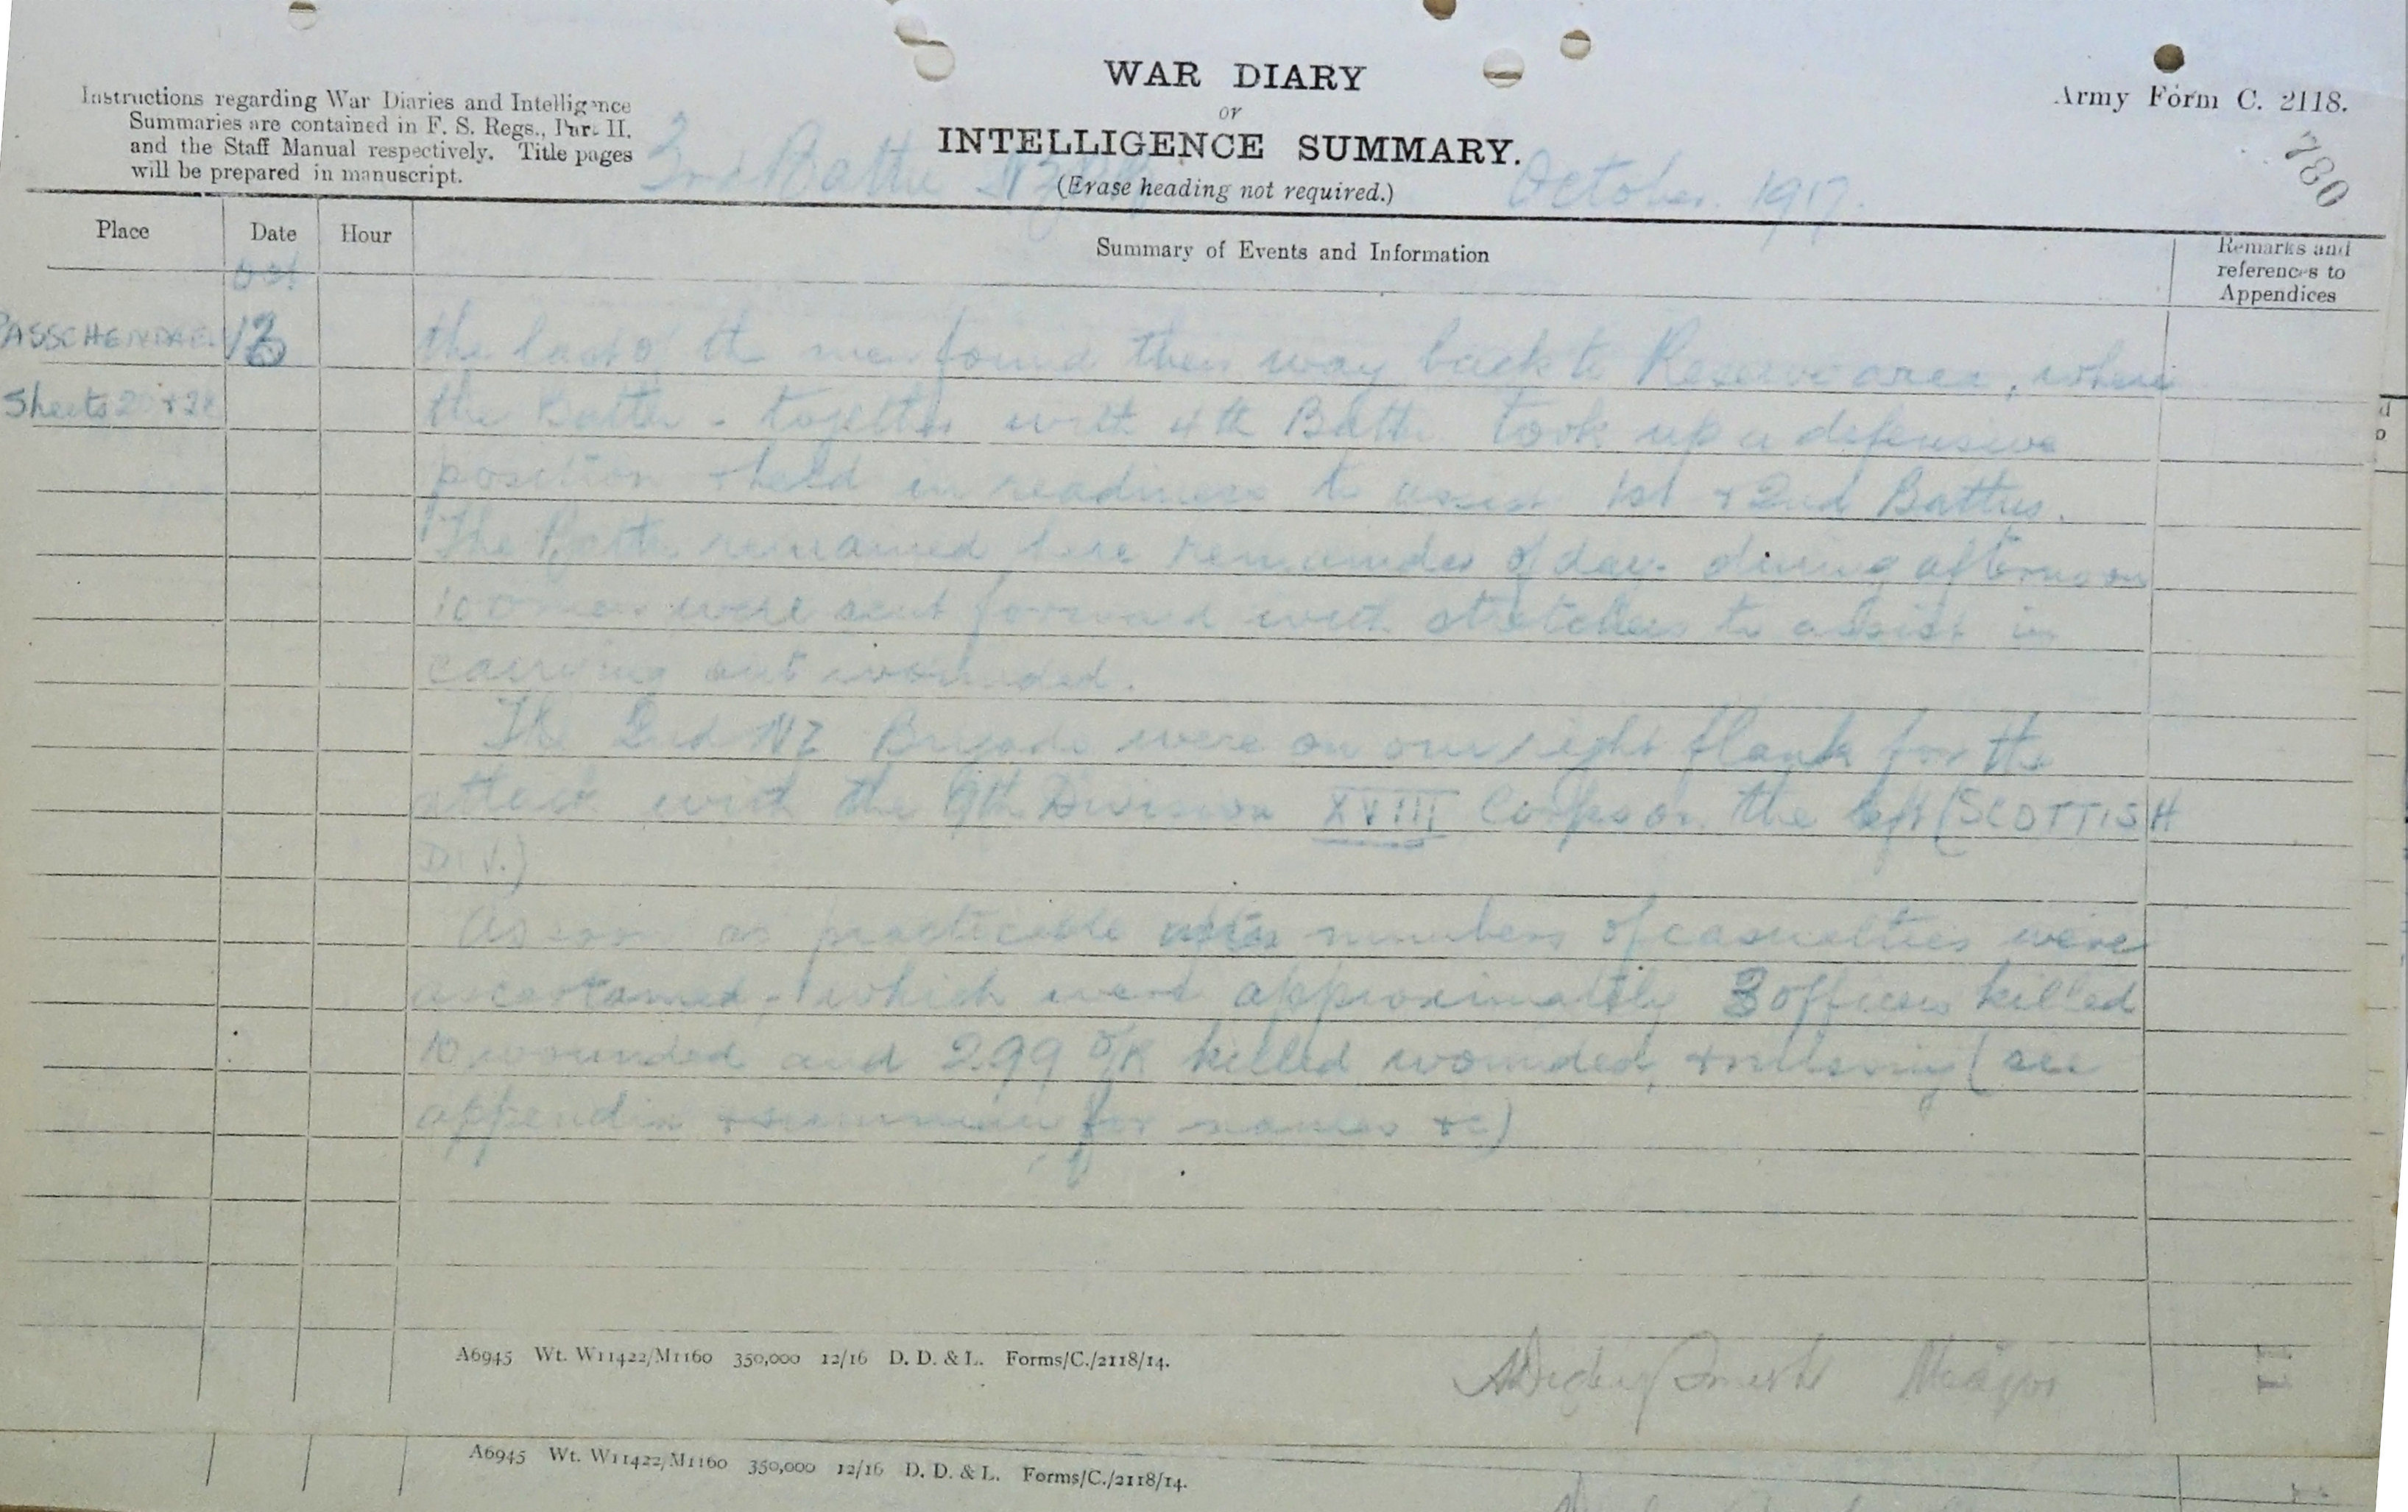 WAR DIARY
or
INTELLIGENCE SUMMARY.
(Erase heading not required.)
Instructions regarding War Diaries and Intelligence
Summaries are contained in F. S. Regs., Part II.
and the Staff Manual respectively. Title pages
will be prepared in manuscript.
Army Form C. 2118.
780
3rd Battn NZ
October 1917.
Place Date Hour Summary of Events and Information Remarks and references to Appendices
Oct
PASSCHENDAELE 13 the last of the men found their way back to Reserve area, where
Sheets 20 + 28 the Battn - together with 4th Battn took up a defensive
position + held in readiness to assist 1st + 2nd Battns.
The Battn remained here remainder of day. during afternoon
100 men were sent forward with stretchers to assist in
carrying out wounded.
The 2nd NZ Brigade were on our right flank for the
attack with the 9th Division XVIII Corps on the left (SCOTTISH
DIV.)
As soon as practicable numbers of casualties were
ascertained, which were approximately 3 officers killed
10 wounded and 299 O/R killed wounded, + missing (see
appendix for names &c)
A6945 Wt. W11422/M1160 350,000 12/16 D. D. & L. Forms/C./2118/14.
Digby Smith Major
A6945 Wt. W11422/M1160 350,000 12/16 D. D. & L. Forms/C./2118/14.